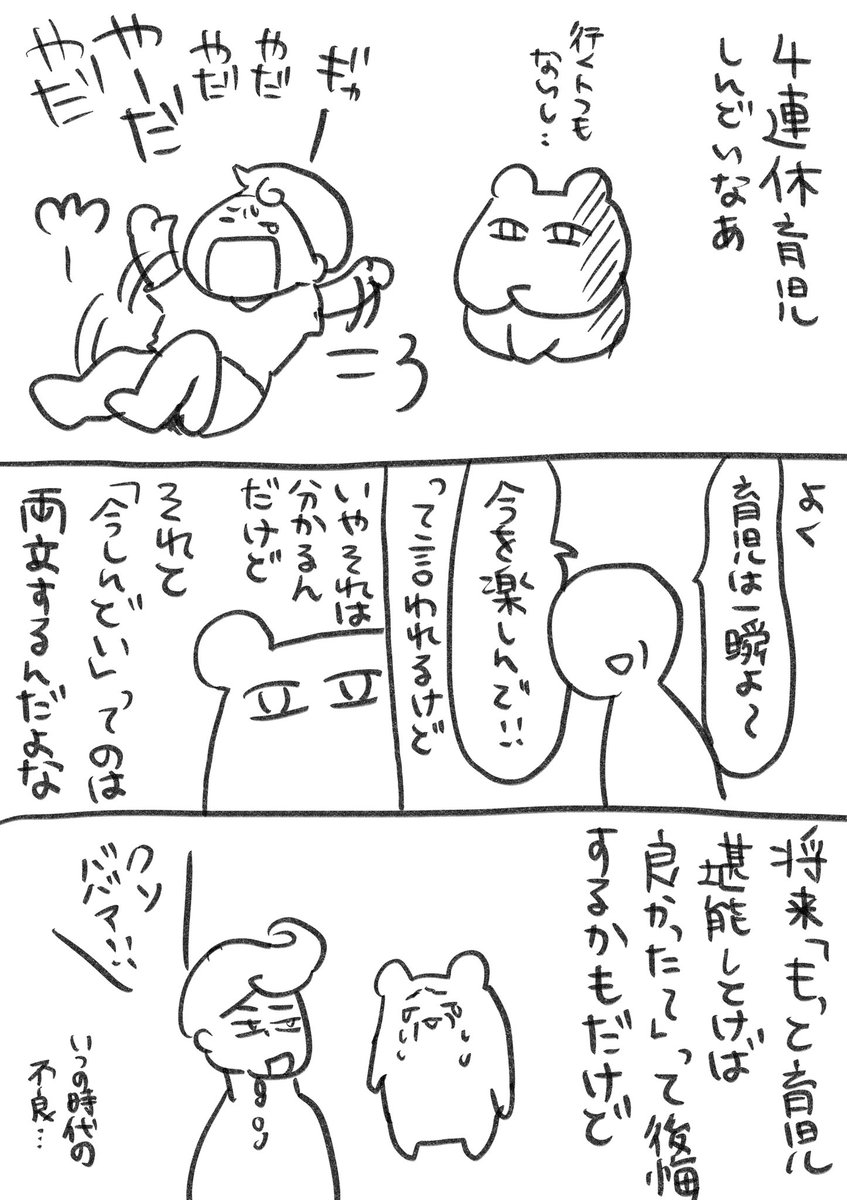 4連休育児
しんどいなあ
行くトコも
ないし…
ギャー
やだ
やだ
やーだ
やだ
ころ
よく
育児は一瞬よ〜
今を楽しんで!!
って言われるけど
いやそれは
分かるん
だけど
それと
「今しんどい」ってのは
両立するんだよな
将来「もっと育児
堪能しとけば
良かったて」って後悔
するかもだけど
クソ
ババア!!
いつの時代の
不良…